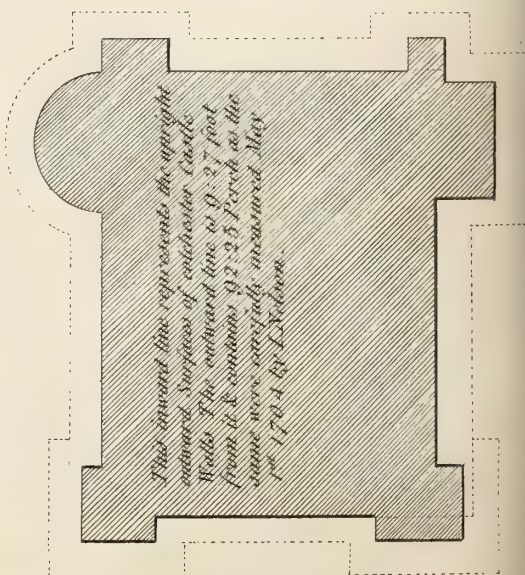 This inward line represents the upright
outward Surfaces of colchester Castle
Walls. The outward line is 9:27 foot
from it & contains 92:25 Perch as the
same were carefully measured May
1st 1704 by I.Nelson.